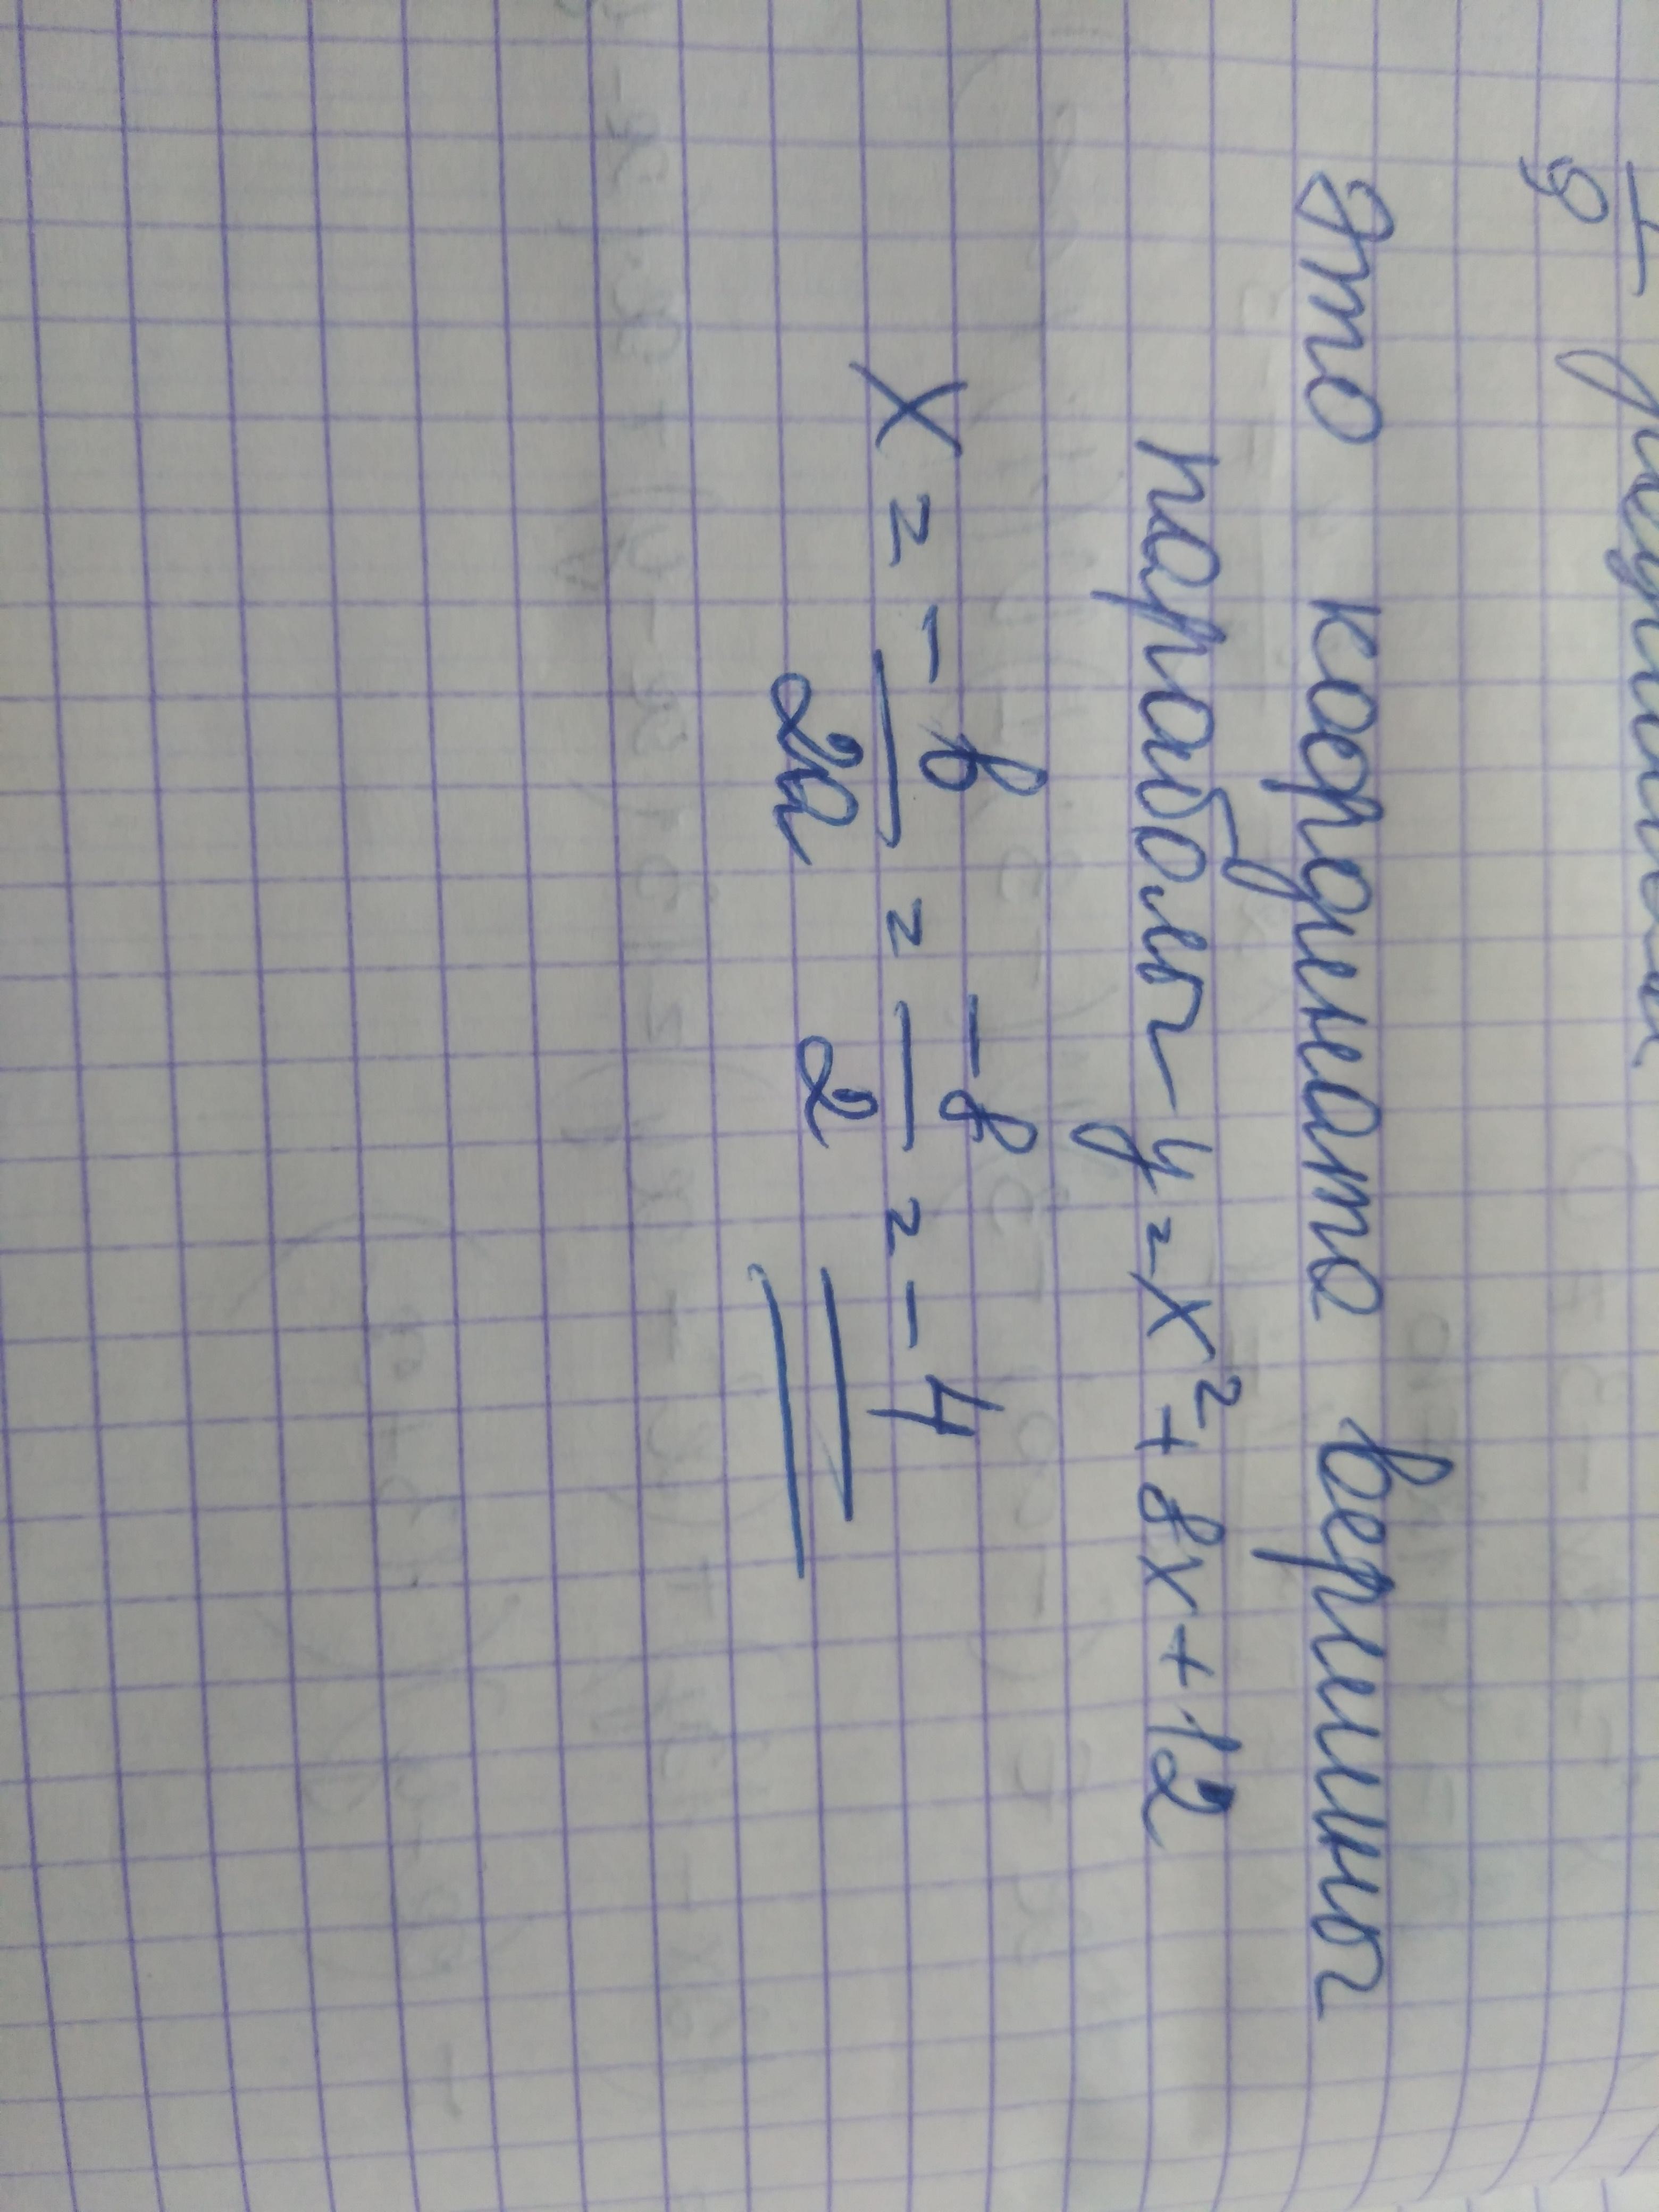 Это координата вершины
параболы y = x² + 8x + 12
x = -b/2a = -8/2 = -4